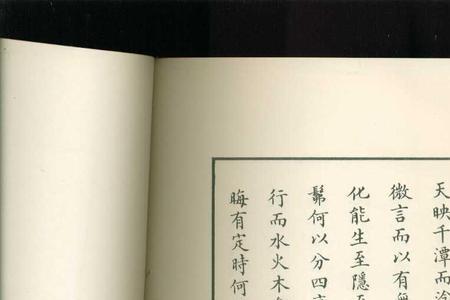 天映千潭而
微言而以有無
化能生至隱
髴何以分四
行而水火木
晦有定時何